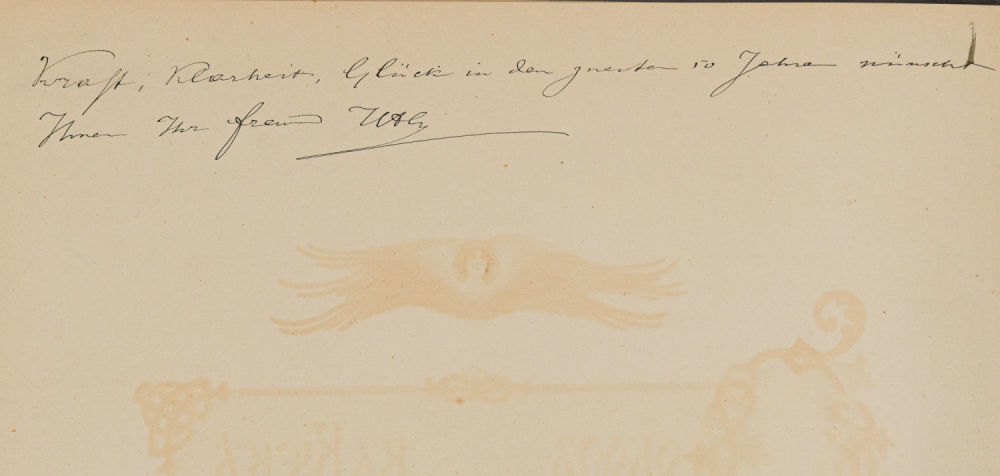 Kraft, Klarheit, Glück in den zweiten 50 Jahren wünscht
Ihnen Ihr Freund